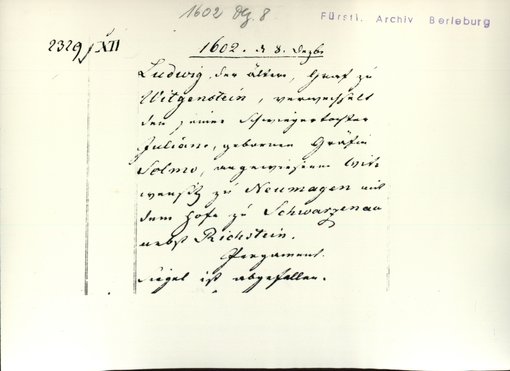 1602 Dez. 8
Fürstl. Archiv Berleburg
2329 / XII
1602. d 8. Dezbr
Ludwig der ältere, Graf zu
Witgenstein, verwechselt
den seiner Schwiegertochter
Juliane, gebornen Gräfin
Solms, angewiesenen Witt
wensitz zu Neumagen mit
dem Hofe zu Schwarzenau
nebst Richstein.
Pergament.
Siegel ist abgefallen.